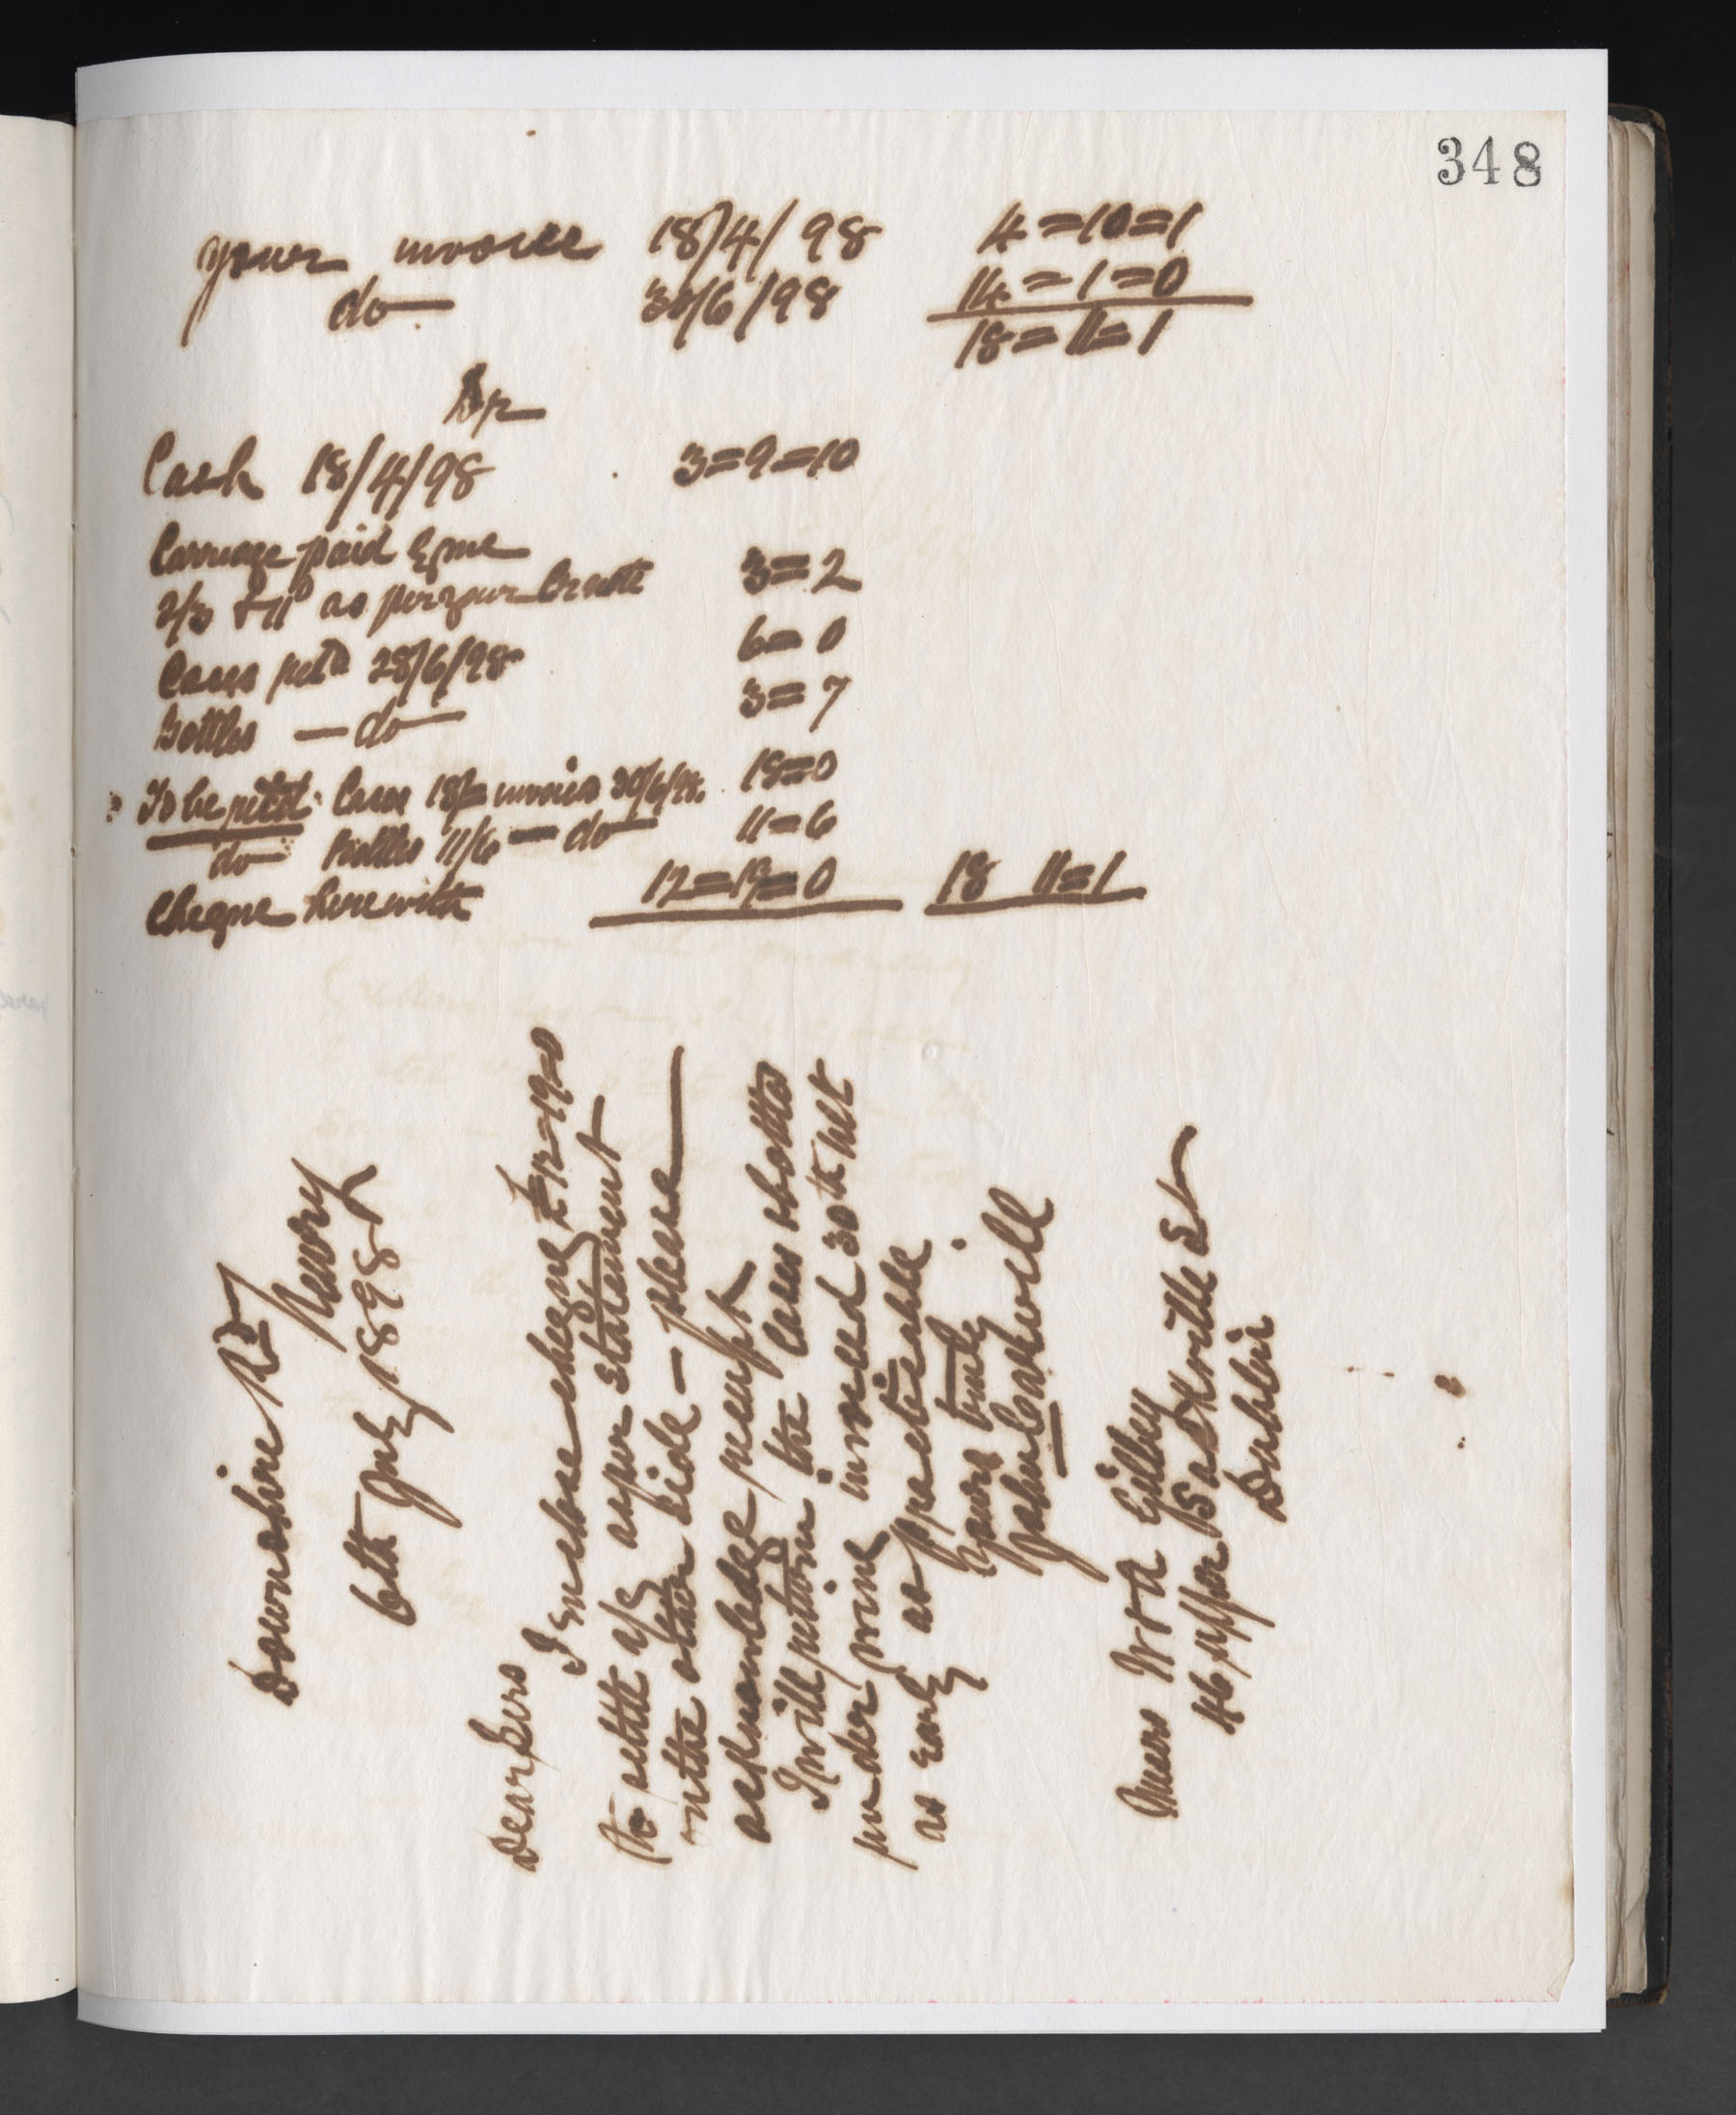 348
your invoice 18/4/98 4=10=1
do 30/6/98 14=1=0
18=11=1
By
Cash 18/4/98 3=9=10
Carriage paid by me
2/3 & 11D as per your Cr note 3=2
Cases retd 28/6/98 6=0
Bottles — do 3=7
To be retd Cases 18/= invoice 30/6/98. 18=0
do Bottles 11/6 — do 11=6
Cheque herewith 12=19=0 18 11=1
Downshire Rd
Newry
6th July 1898
Dear Sirs
I enclose cheque £12=19=0
to settle a/c as per statement
on the other side — please
acknowledge receipt
I will return the Cases & bottles
under mine invoiced 30th ult
as early as practicable
Yours truly
John Cartwell
Messrs W & A Gilbey
46 upper Sackville St
Dublin